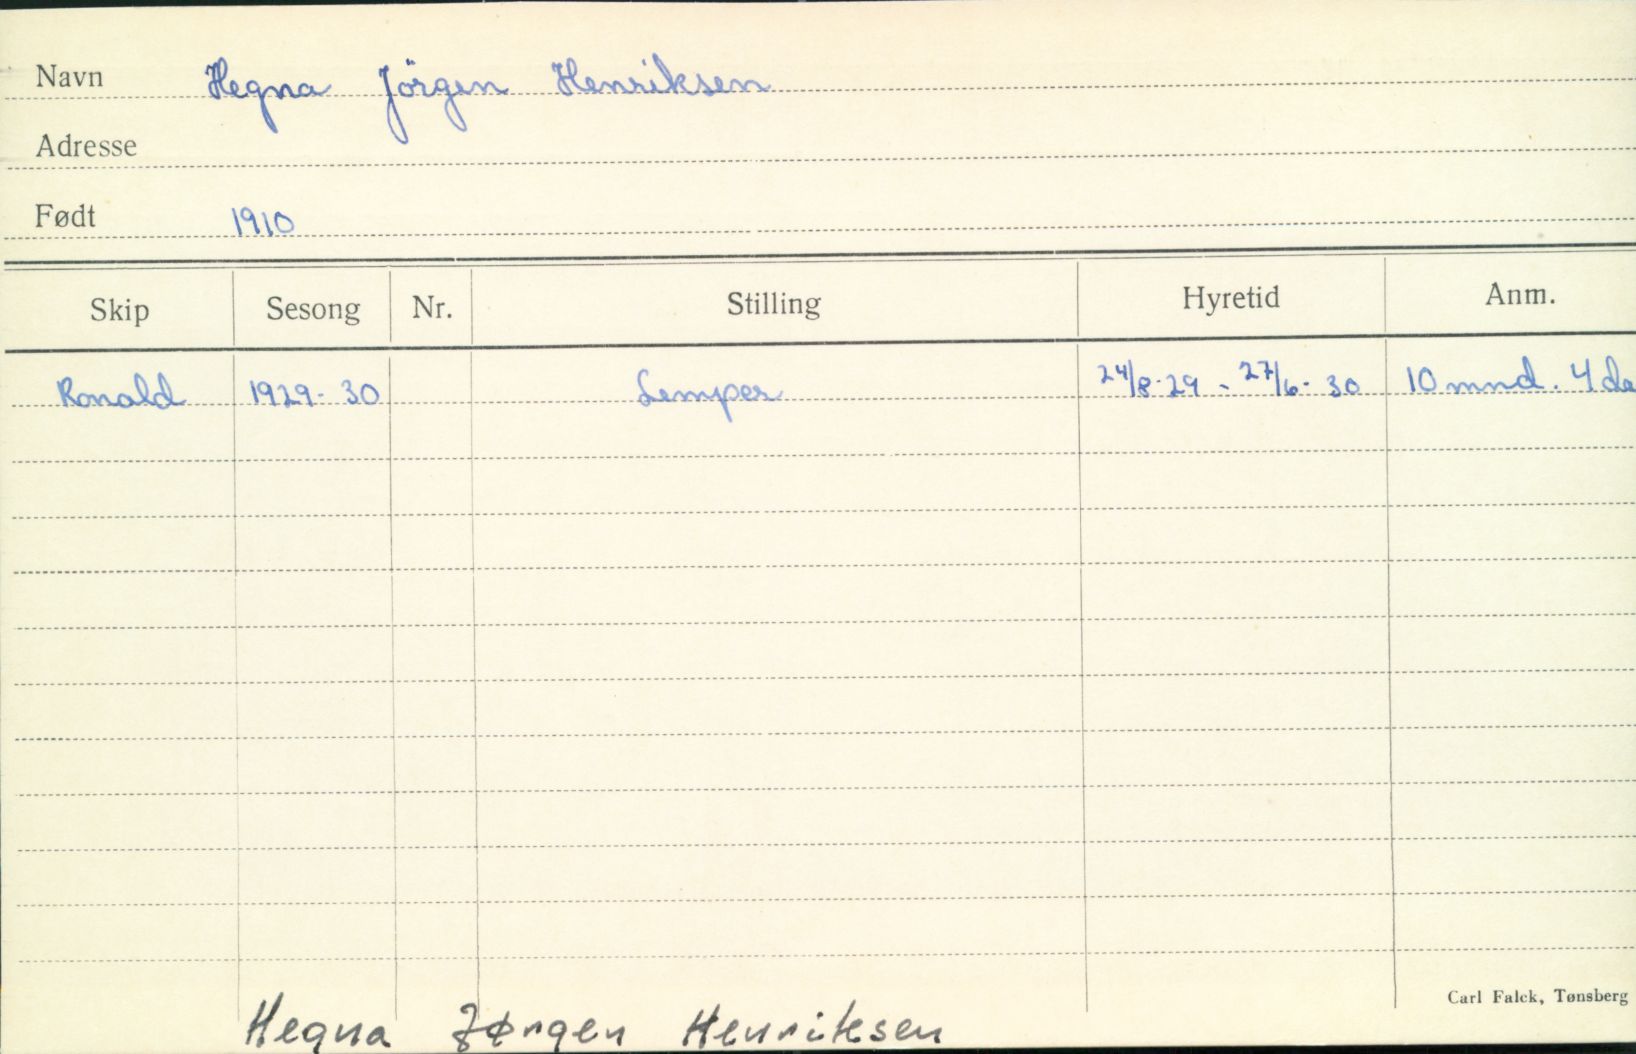 Navn Hegna Jörgen Henriksen
Adresse
Født 1910
Skip Sesong Nr. Stilling Hyretid Anm.
Ronald 1929-30 Lemper 24/8-29 - 27/6-30 10 mnd. 4 da
Carl Falck, Tønsberg
Hegna Jørgen Henriksen